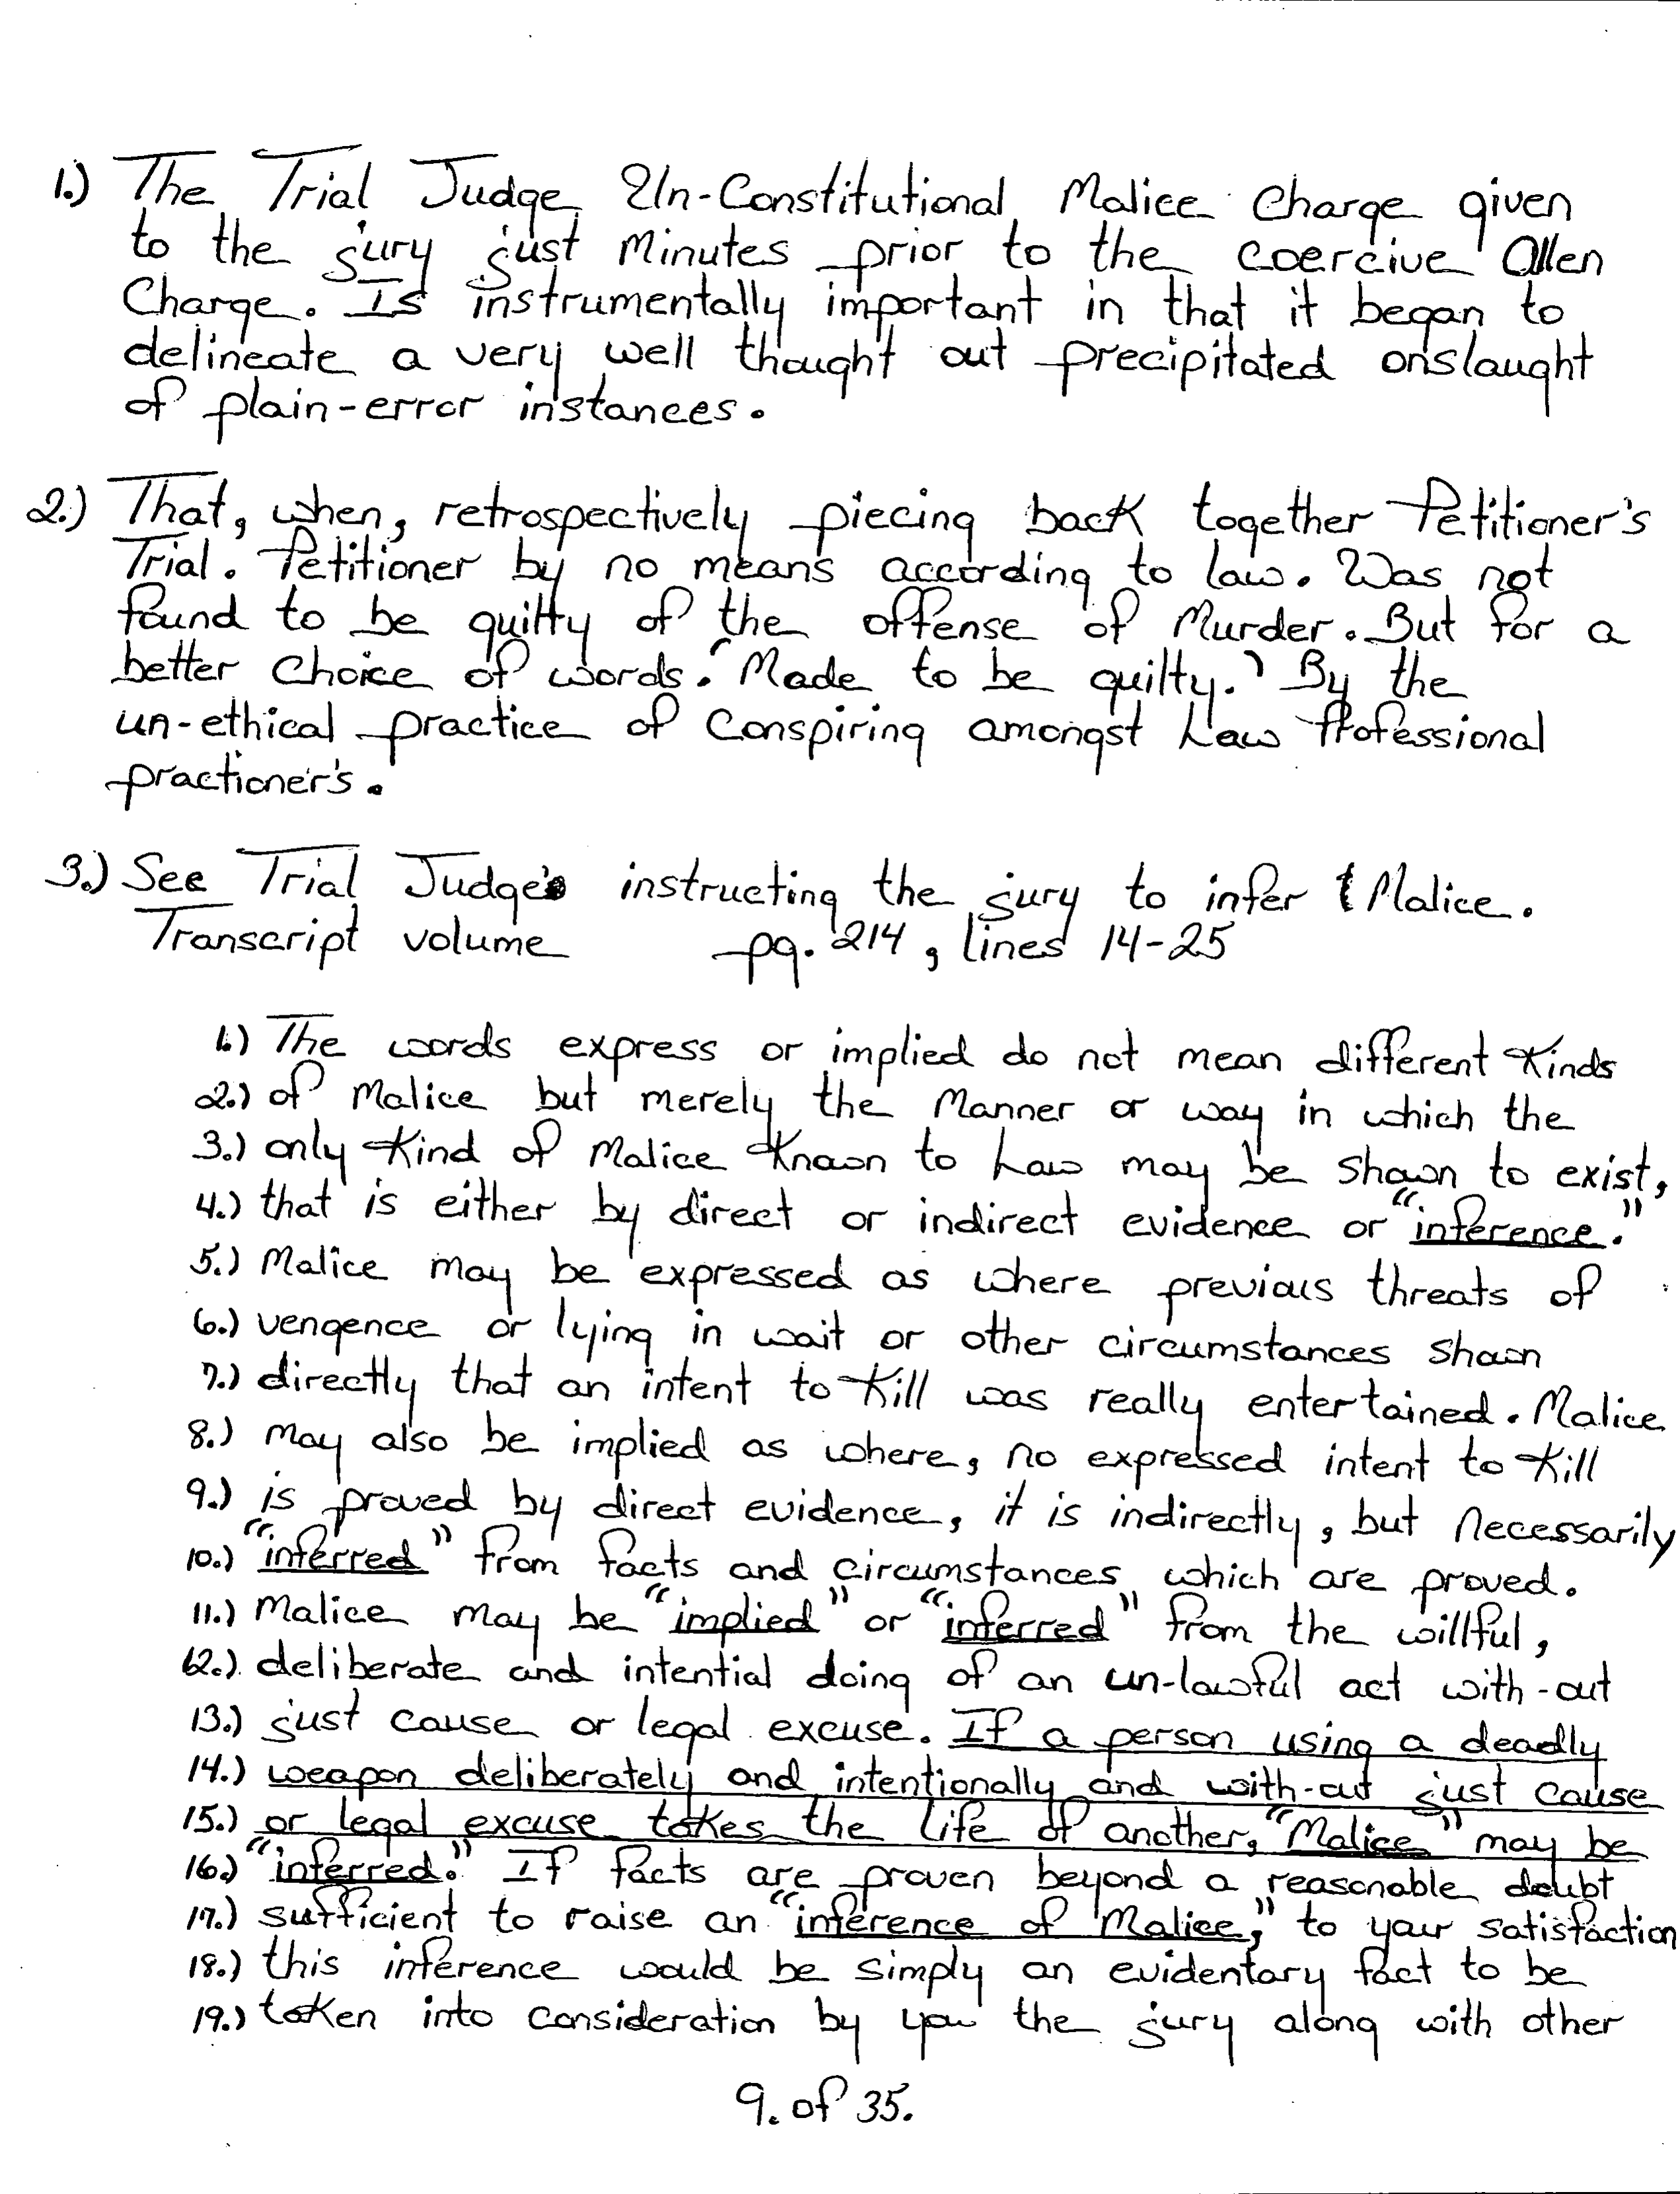 1.) The Trial Judge, Un-Constitutional, Malice Charge given
to the jury just Minutes prior to the coercive Allen
Charge. Is instrumentally important in that it began to
delineate a very well thought out precipitated onslaught
of plain-error instances.
2.) That, when, retrospectively piecing back together Petitioner's
Trial. Petitioner by no means according to law. Was not
found to be guilty of the offense of Murder. But for a
better choice of words. "Made to be guilty." By the
un-ethical practice of Conspiring amongst Law Professional
practioner's.
3.) See Trial Judge's instructing the jury to infer Malice.
Transcript volume pg. 214, lines 14-25
1.) The words express or implied do not mean different Kinds
2.) of Malice but merely the Manner or way in which the
3.) only Kind of Malice Known to Law may be shown to exist,
4.) that is either by direct or indirect evidence or "inference."
5.) Malice may be expressed as where previous threats of
6.) vengence or lying in wait or other circumstances shown
7.) directly that an intent to Kill was really entertained. Malice
8.) may also be implied as where, no expressed intent to Kill
9.) is proved by direct evidence, it is indirectly, but Necessarily
10.) "inferred" from facts and circumstances which are proved.
11.) Malice may be "implied" or "inferred" from the willful,
12.) deliberate and intential doing of an un-lawful act with-out
13.) just cause or legal excuse. If a person using a deadly
14.) weapon deliberately and intentionally and with-out just cause
15.) or legal excuse takes the life of another, "Malice" may be
16.) "inferred." If facts are proven beyond a reasonable doubt
17.) sufficient to raise an "inference of Malice," to your satisfaction
18.) this inference would be simply an evidentory fact to be
19.) taken into consideration by you the jury along with other
9. of 35.